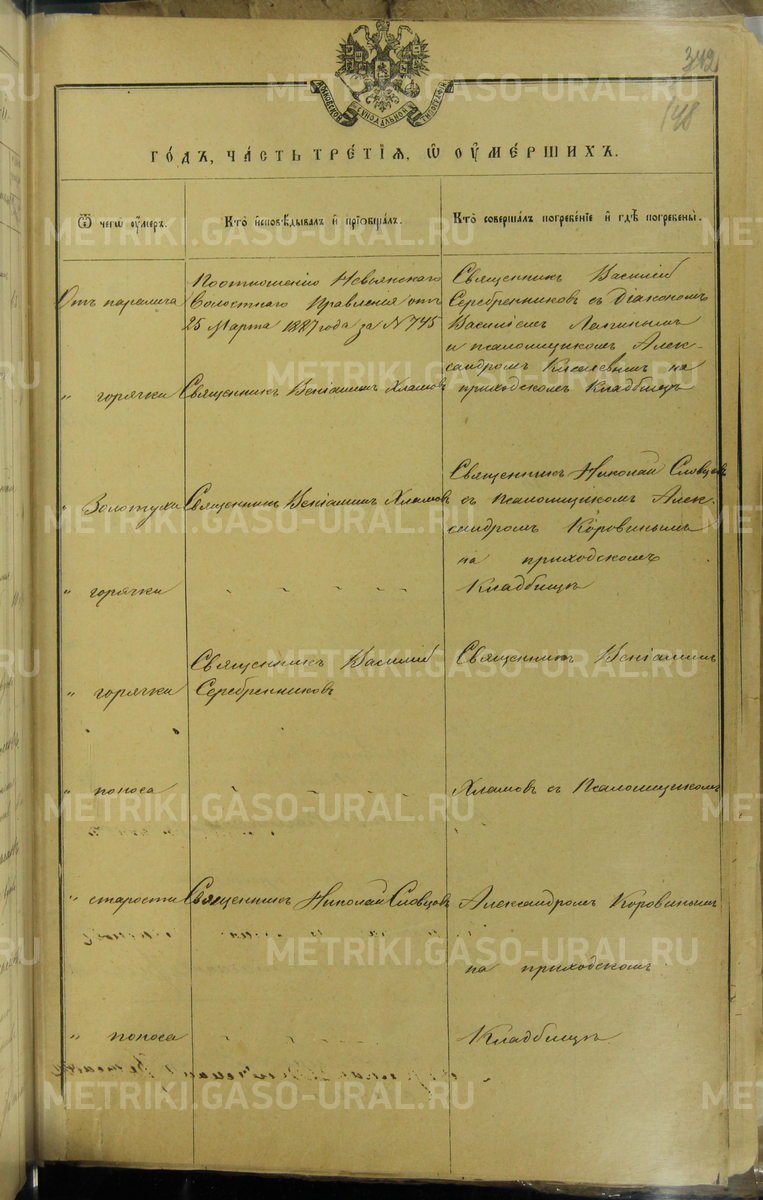 342
148
МОСКОВСКОЙ СѴНОДАЛЬНОЙ ТИПОГРАФІИ
ГО́ДЪ, ЧА́СТЬ ТРЕ́ТІЯ, Ѿ ОУ҆МЕ́РШИХЪ.
Ѿ чегѡ̀ оу҆́меръ.
Кто̀ и҆сповѣ́дывалъ и҆ прїѡбща́лъ.
Кто̀ соверша́лъ погребе́нїе и҆ гдѣ̀ погребены̀.
Отъ паралича
По отношенію Невьянскаго
Волостнаго Правленія отъ
25 Марта 1887 года за N 745
Священникъ Василій
Серебренниковъ съ Діакономъ
Василіемъ Лапинымъ
и псаломщикомъ Алек-
сандромъ Киселевымъ на
приходскомъ Кладбищѣ
" горячки
Священникъ Веніаминъ Хламовъ
" Золотухи
Священникъ Веніаминъ Хламовъ
Священникъ Николай Словцовъ
съ Псаломщикомъ Алек-
сандромъ Коровинымъ
на приходскомъ
Кладбищѣ
" горячки
" " " " "
" горячки
Священникъ Василій
Серебренниковъ
Священникъ Веніаминъ
" поноса
" " " "
Хламовъ съ Псаломщикомъ
" старости
Священникъ Николай Словцовъ
Александромъ Коровинымъ
на приходскомъ
" поноса
Кладбищѣ
METRIKI.GASO-URAL.RU